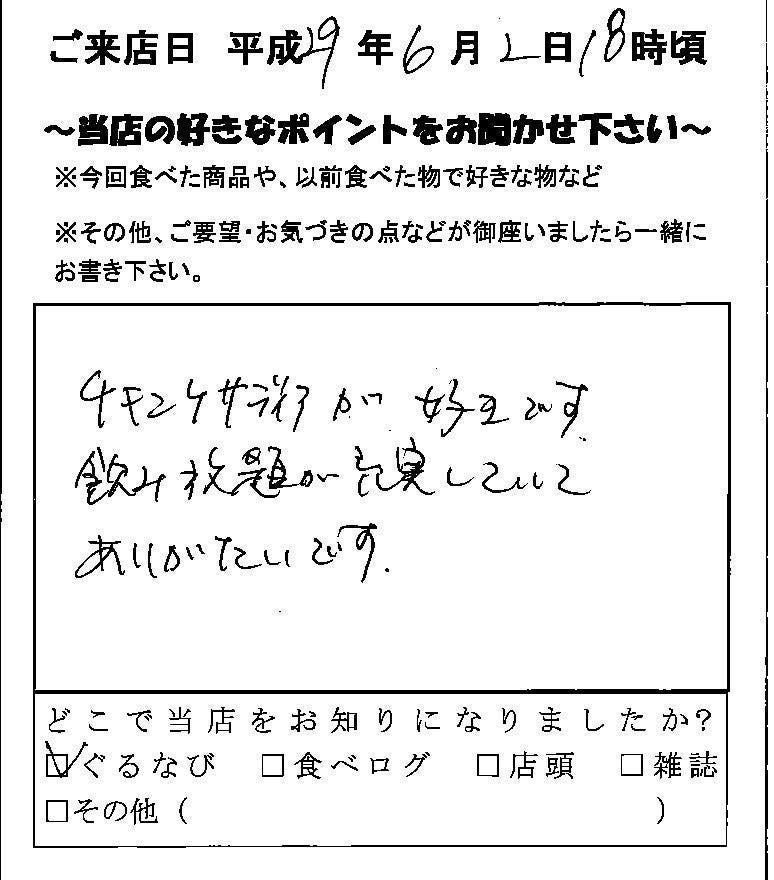 ご来店日 平成29年6月2日18時頃
～当店の好きなポイントをお聞かせ下さい～
※今回食べた商品や、以前食べた物で好きな物など
※その他、ご要望・お気づきの点などが御座いましたら一緒に
お書き下さい。
チキンケサディアが好きです。
飲み放題が充実していて
ありがたいです.
どこで当店をお知りになりましたか？
☑ぐるなび □食べログ □店頭 □雑誌
□その他（ ）